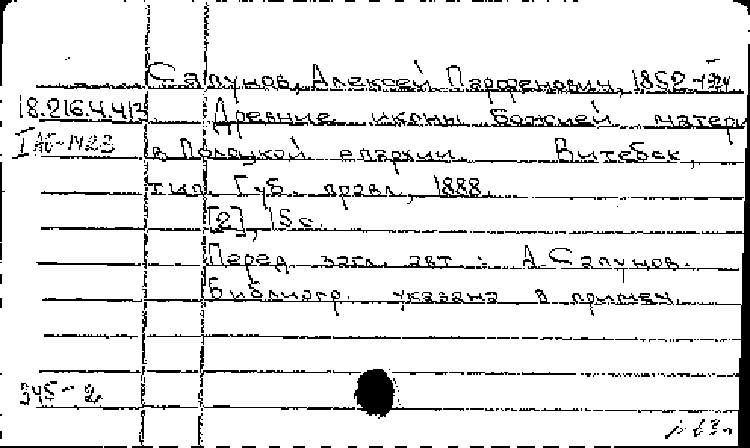 Сапунов, Алексей Парфенович, 1852-1924
18.216.4.413 Древние иконы Божией матери
I Аб-1423 в Полоцкой епархии. Витебск,
тип. Губ. правл., 1888.
[2], 15 с.
Перед загл. авт.: А. Сапунов.
Библиогр. указана в примеч.
345-2